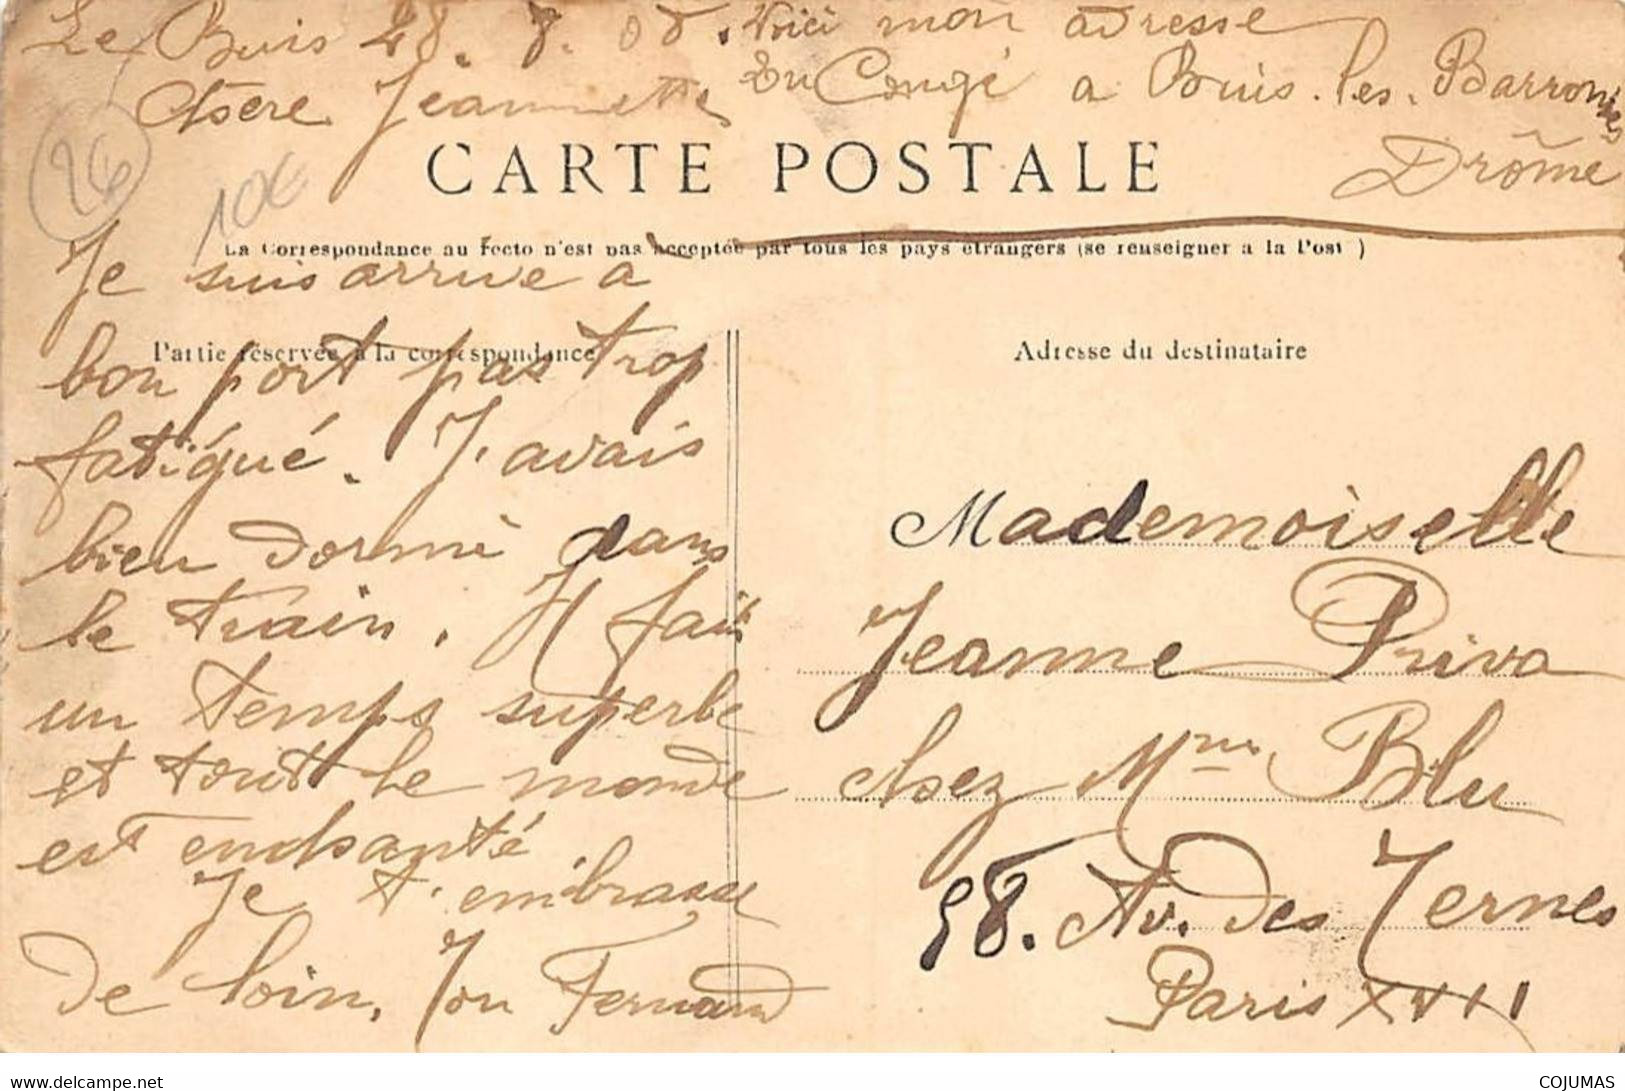 Le Buis 28. 8. 08. Voici mon adresse
Chère Jeannette En Congé a Buis. les. Barronies
Drôme
26
10€
CARTE POSTALE
La Correspondance au recto n'est pas acceptée par tous les pays étrangers (se renseigner à la Post )
Je suis arrivé a
Partie réservée à la correspondance
bon port pas trop
fatigué. J'avais
bien dormi dans
le train. Il fait
un temps superbe
et tout le monde
est enchanté.
Je t'embrasse
de loin, Ton Fernand
Adresse du destinataire
Mademoiselle
Jeanne Priva
chez Mme Blu
58. Av. des Ternes
Paris XVII
www.delcampe.net
COJUMAS